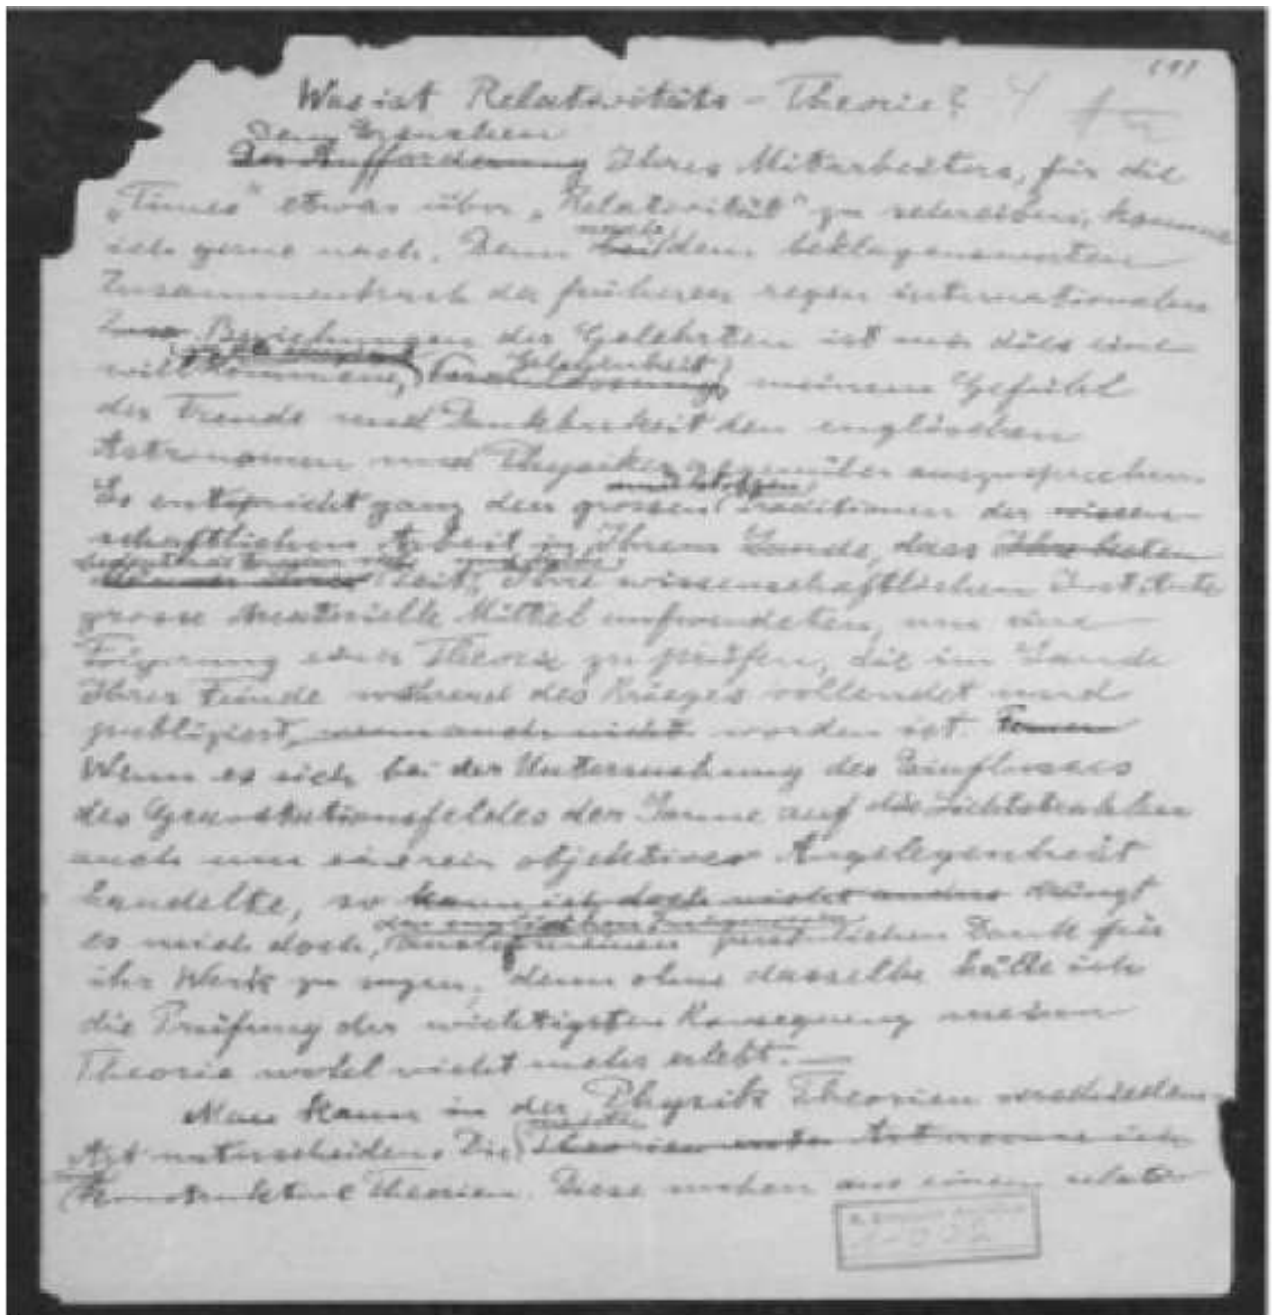 Was ist Relativitäts-Theorie?
Dem Ersuchen
Der Aufforderung Ihres Mitarbeiters, für die
„Times“ etwas über „Relativität“ zu schreiben, komme
nach
ich gerne nach. Denn bei dem beklagenswerten
Zusammenbruch der früheren regen internationalen
Beziehungen der Gelehrten ist mir dies eine
Gelegenheit
willkommene, Veranlassung, meinem Gefühl
der Freude und Dankbarkeit den englischen
Astronomen und Physikern gegenüber auszusprechen.
und stolzen
Es entspricht ganz den grossen Traditionen der wissen-
schaftlichen Arbeit in Ihrem Lande, dass Ihre besten
Zeit, Ihre wissenschaftlichen Institute
grosse materielle Mittel aufwendeten, um eine
Folgerung einer Theorie zu prüfen, die im Lande
Ihrer Feinde während des Krieges vollendet und
publiziert, wenn auch nicht worden ist.
Wenn es sich bei der Untersuchung des Einflusses
des Gravitationsfeldes der Sonne auf die Lichtstrahlen
auch um eine rein objektive Angelegenheit
handelte, so kann ich doch nicht anders drängt
den englischen
es mich doch, meinen persönlichen Dank für
ihr Werk zu sagen; denn ohne dasselbe hätte ich
die Prüfung der wichtigsten Konsequenz meiner
Theorie wohl nicht mehr erlebt. —
Man kann in der Physik Theorien verschiedener
Art unterscheiden. Die Theorien erster Art nenne ich
konstruktive Theorien. Diese suchen aus einem relativ